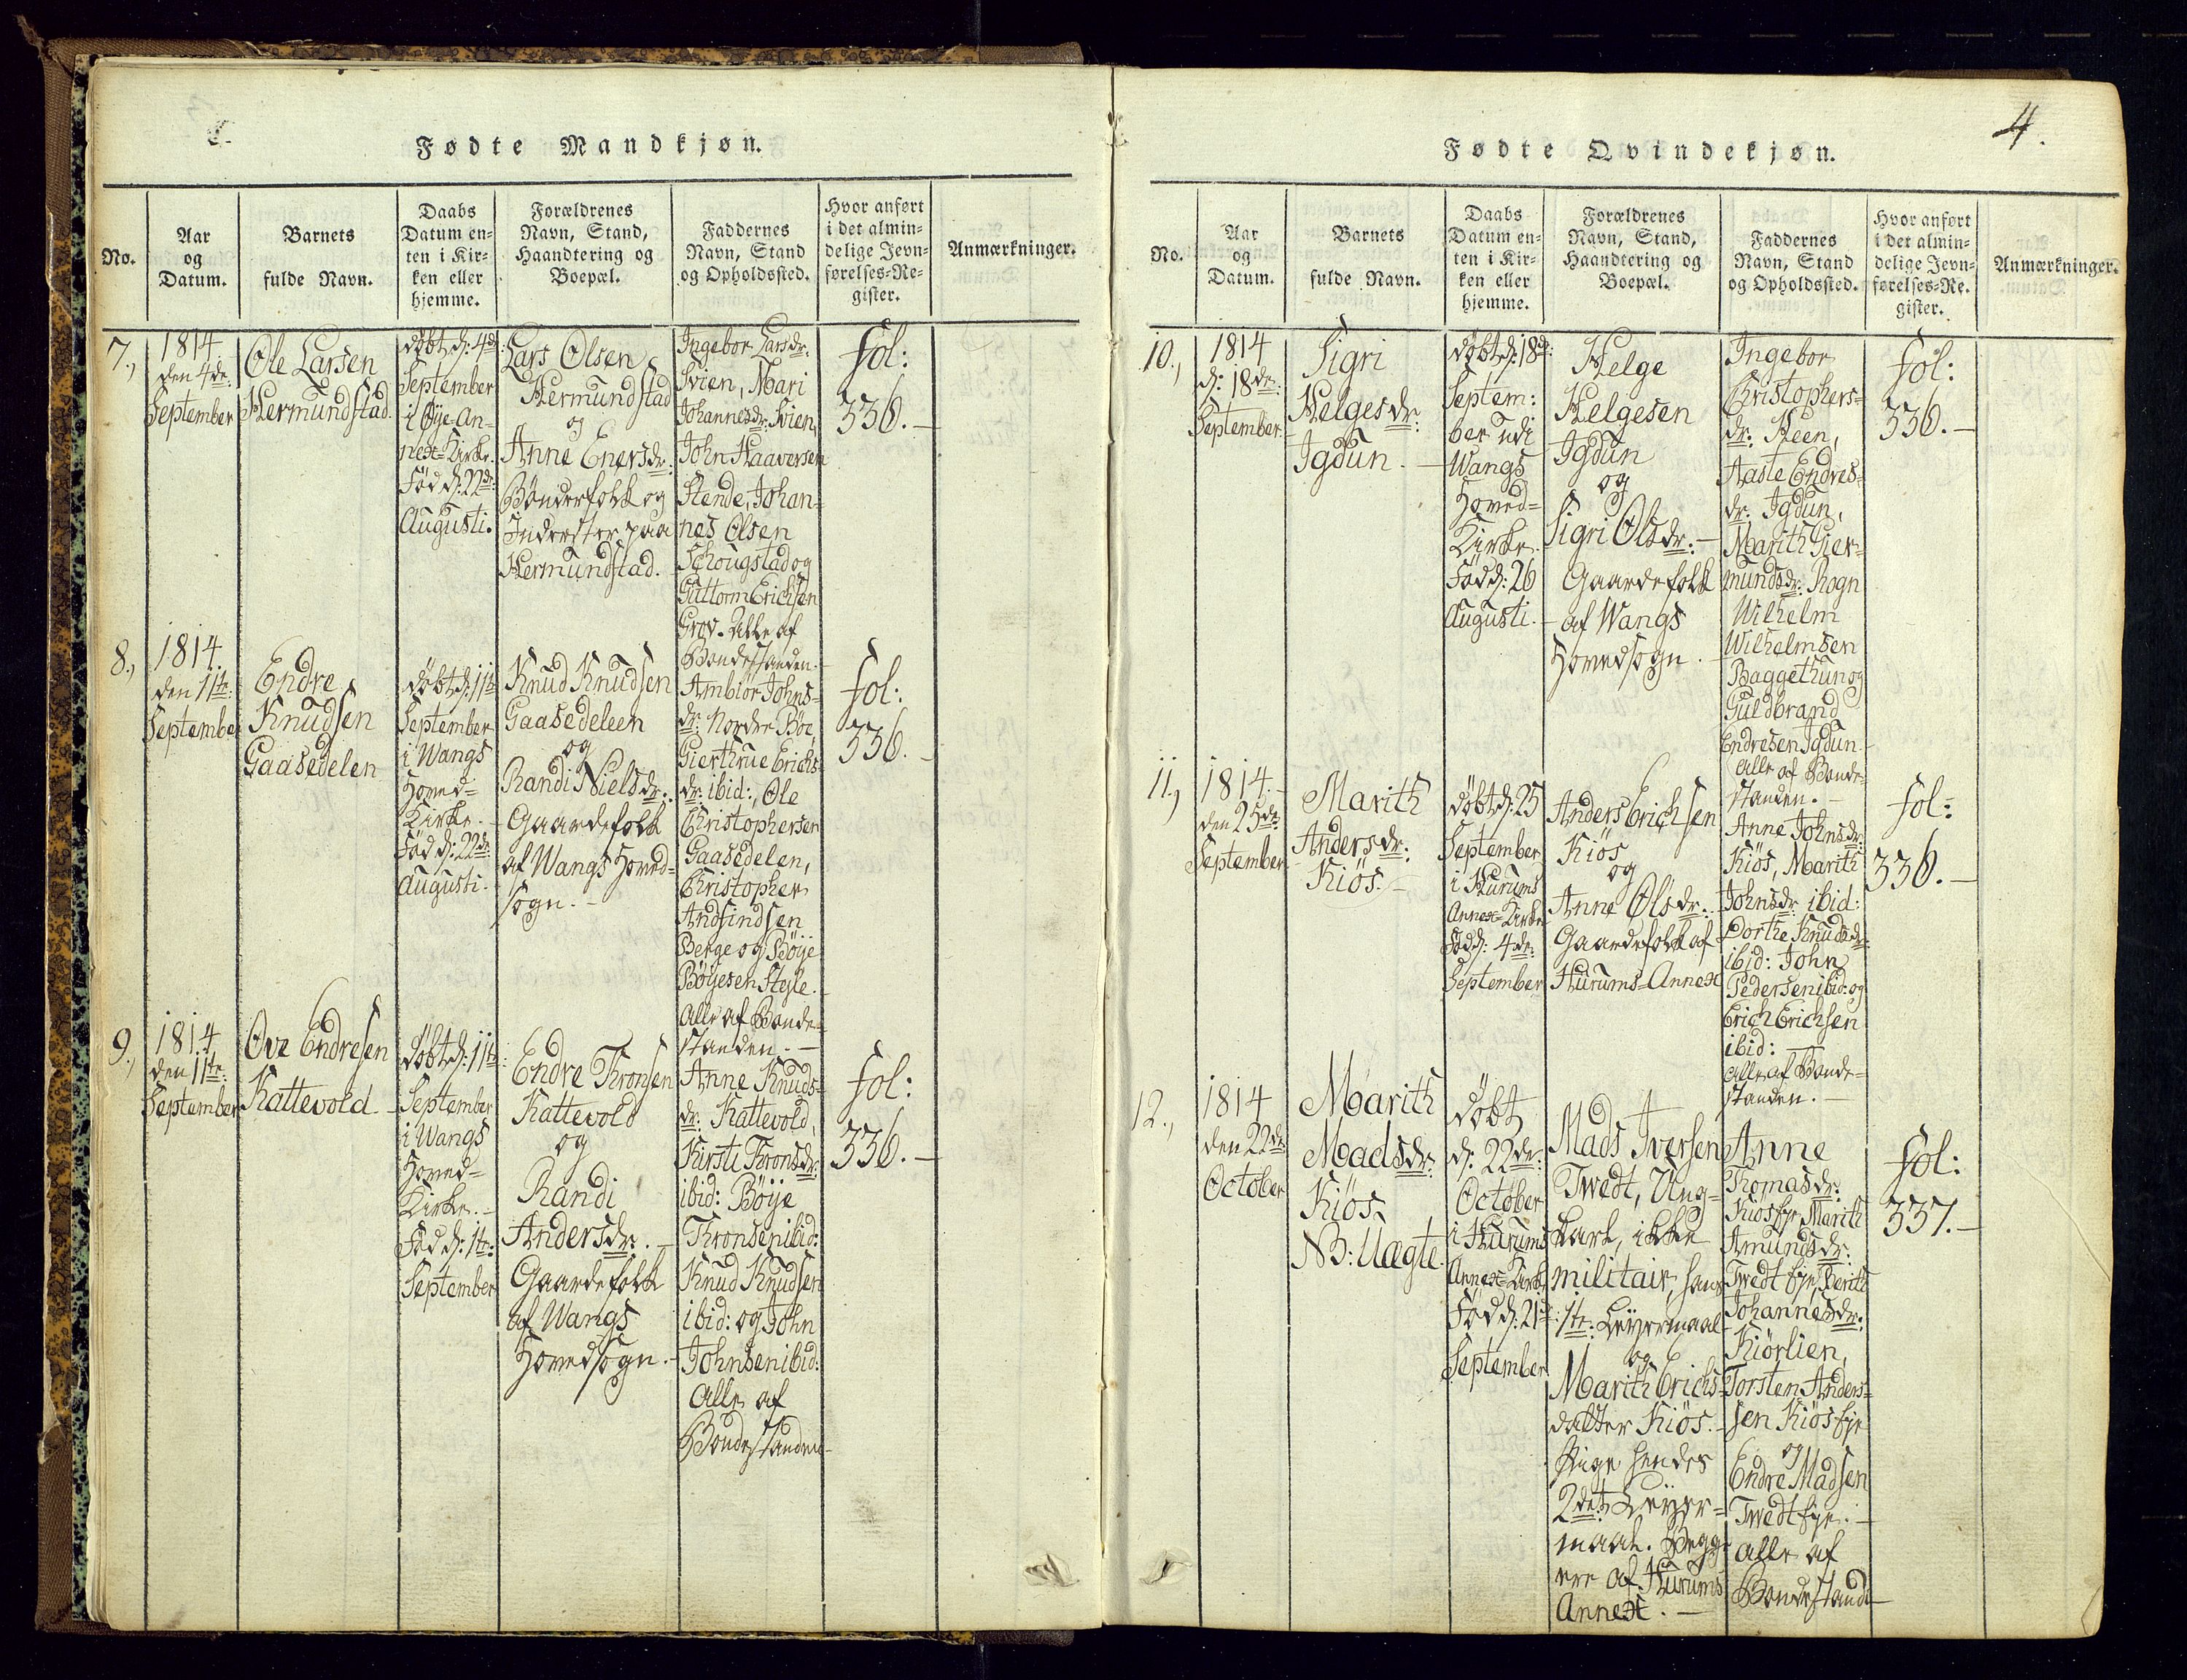 Fødte Mandkjøn.
No.
Aar
og
Datum.
Barnets
fulde Navn.
Daabs
Datum en-
ten i Kir-
ken eller
hjemme.
Forældrenes
Navn, Stand,
Haandtering og
Boepæl.
Faddernes
Navn, Stand
og Opholdssted.
Hvor anført
i det almin-
delige Jevn-
førelses-Re-
gister.
Anmærkninger.
7.,
1814
den 4de:
September
Ole Larsen
Hermundstad.
döbt d: 4de
September
i Øye-An-
nex-Kirke.
Föd d: 22de:
Augusti.
Lars Olsen
Hermundstad
og
Anne Enersdr:
Bönderfolk og
Inderster paa
Hermundstad.
Ingebor Larsdr:
Svien, Mari
Johannesdr: Svien,
John Haaversen
Stende, Johan-
nes Olsen
Schougstad og
Guttorm Erichsen
Grov. Alle af
Bondestanden.
fol:
336.
8.,
1814.
den 11te:
September
Endre
Knudsen
Gaasedelen
döbt d: 11te
September
i Wangs
Hoved-
Kirke.
Föd d: 22de
Augusti.
Knud Knudsen
Gaasedeleen
og
Randi Nielsdr:
Gaardefolk
af Wangs Hoved-
sogn.
Ambiör Johns-
dr: Nordre Böe,
Gierthrue Erichs-
dr: ibid:, Ole
Christophersen
Gaasedelen,
Christopher
Andsindsen
Berge og Böije
Böijesen Steile.
Alle af Bonde-
standen.
fol:
336.
9.,
1814
den 11te:
September
Ove Endresen
Kattevold
döbt d: 11te:
September
i Wangs
Hoved-
Kirke.
Föd d: 1te:
September
Endre Thronsen
Kattevold
og
Randi
Andersdr:
Gaardefolk
af Wangs
Hovedsogn.
Anne Knuds-
dr: Kattevold,
Kirsti Thronsdr:
ibid: Böije
Thronsen ibid:
Knud Knudsen
ibid: og John
Johnsen ibid:
Alle af
Bondestanden
fol:
336.
4.
Fødte Qvindekjøn.
No.
Aar
og
Datum.
Barnets
fulde Navn.
Daabs
Datum en-
ten i Kir-
ken eller
hjemme.
Forældrenes
Navn, Stand,
Haandtering og
Boepæl.
Faddernes
Navn, Stand
og Opholdssted.
Hvor anført
i det almin-
delige Jevn-
førelses-Re-
gister.
Anmærkninger.
10.,
1814
d: 18de:
September
Sigri
Helgesdr:
Igdun.
döbt d: 18de:
Septem:
ber udi
Wangs
Hoved-
Kirke.
Föd d: 26
Augusti.
Helge
Helgesen
Igdun
og
Sigri Olsdr:
Gaardefolk
af Wangs
Hovedsogn.
Ingebor
Christophers-
dr: Heen,
Aaste Endres-
dr: Igdun,
Marith Gier-
mundsdr: Rogn
Wilhelm
Wilhelmsen
Baggethun og
Guldbrand
Endresen Igdun
Alle af Bonde-
standen.
fol:
336.
11.,
1814.
den 25de:
September
Marith
Andersdr:
Kiös.
döbt d: 25
September
i Hurums
Annex-Kirke
Föd d: 4de:
September
Anders Erichsen
Kiös
og
Anne Olsdr:
Gaardefolk af
Hurums-Annex
Anne Johnsdr:
Kiös, Marith
Johnsdr: ibid:
Dorthe Knudsdr:
ibid: John
Pedersen ibid: og
Erich Erichsen
ibid:
Alle af Bonde-
standen.
fol:
336.
12.,
1814
den 22de
October
Marith
Madsdr:
Kiös.
NB: Uægte.
döbt
d: 22de:
October
i Hurums
Annex-Kirke
Föd d: 21de:
September
Mads Iversen
Twedt, Ung-
karl, ikke
militair, hans
1te: Leyermaal
og
Marith Erichs-
datter Kiös.
Pige hendes
2det Leyer-
maal. Begge
ere af Hurums
Annex.
Anne
Thomasdr:
Kiös Eje, Marith
Amundsdr:
Twedt Eje, Berith
Johannesdr:
Kiörlien,
Torsten Anders-
sen Kiös Eje
og
Endre Madsen
Twedt Eje.
Alle af
Bondestand
fol:
337.